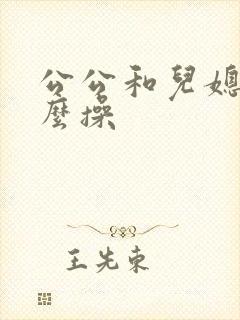 公公和兒媳
麼操
王先東